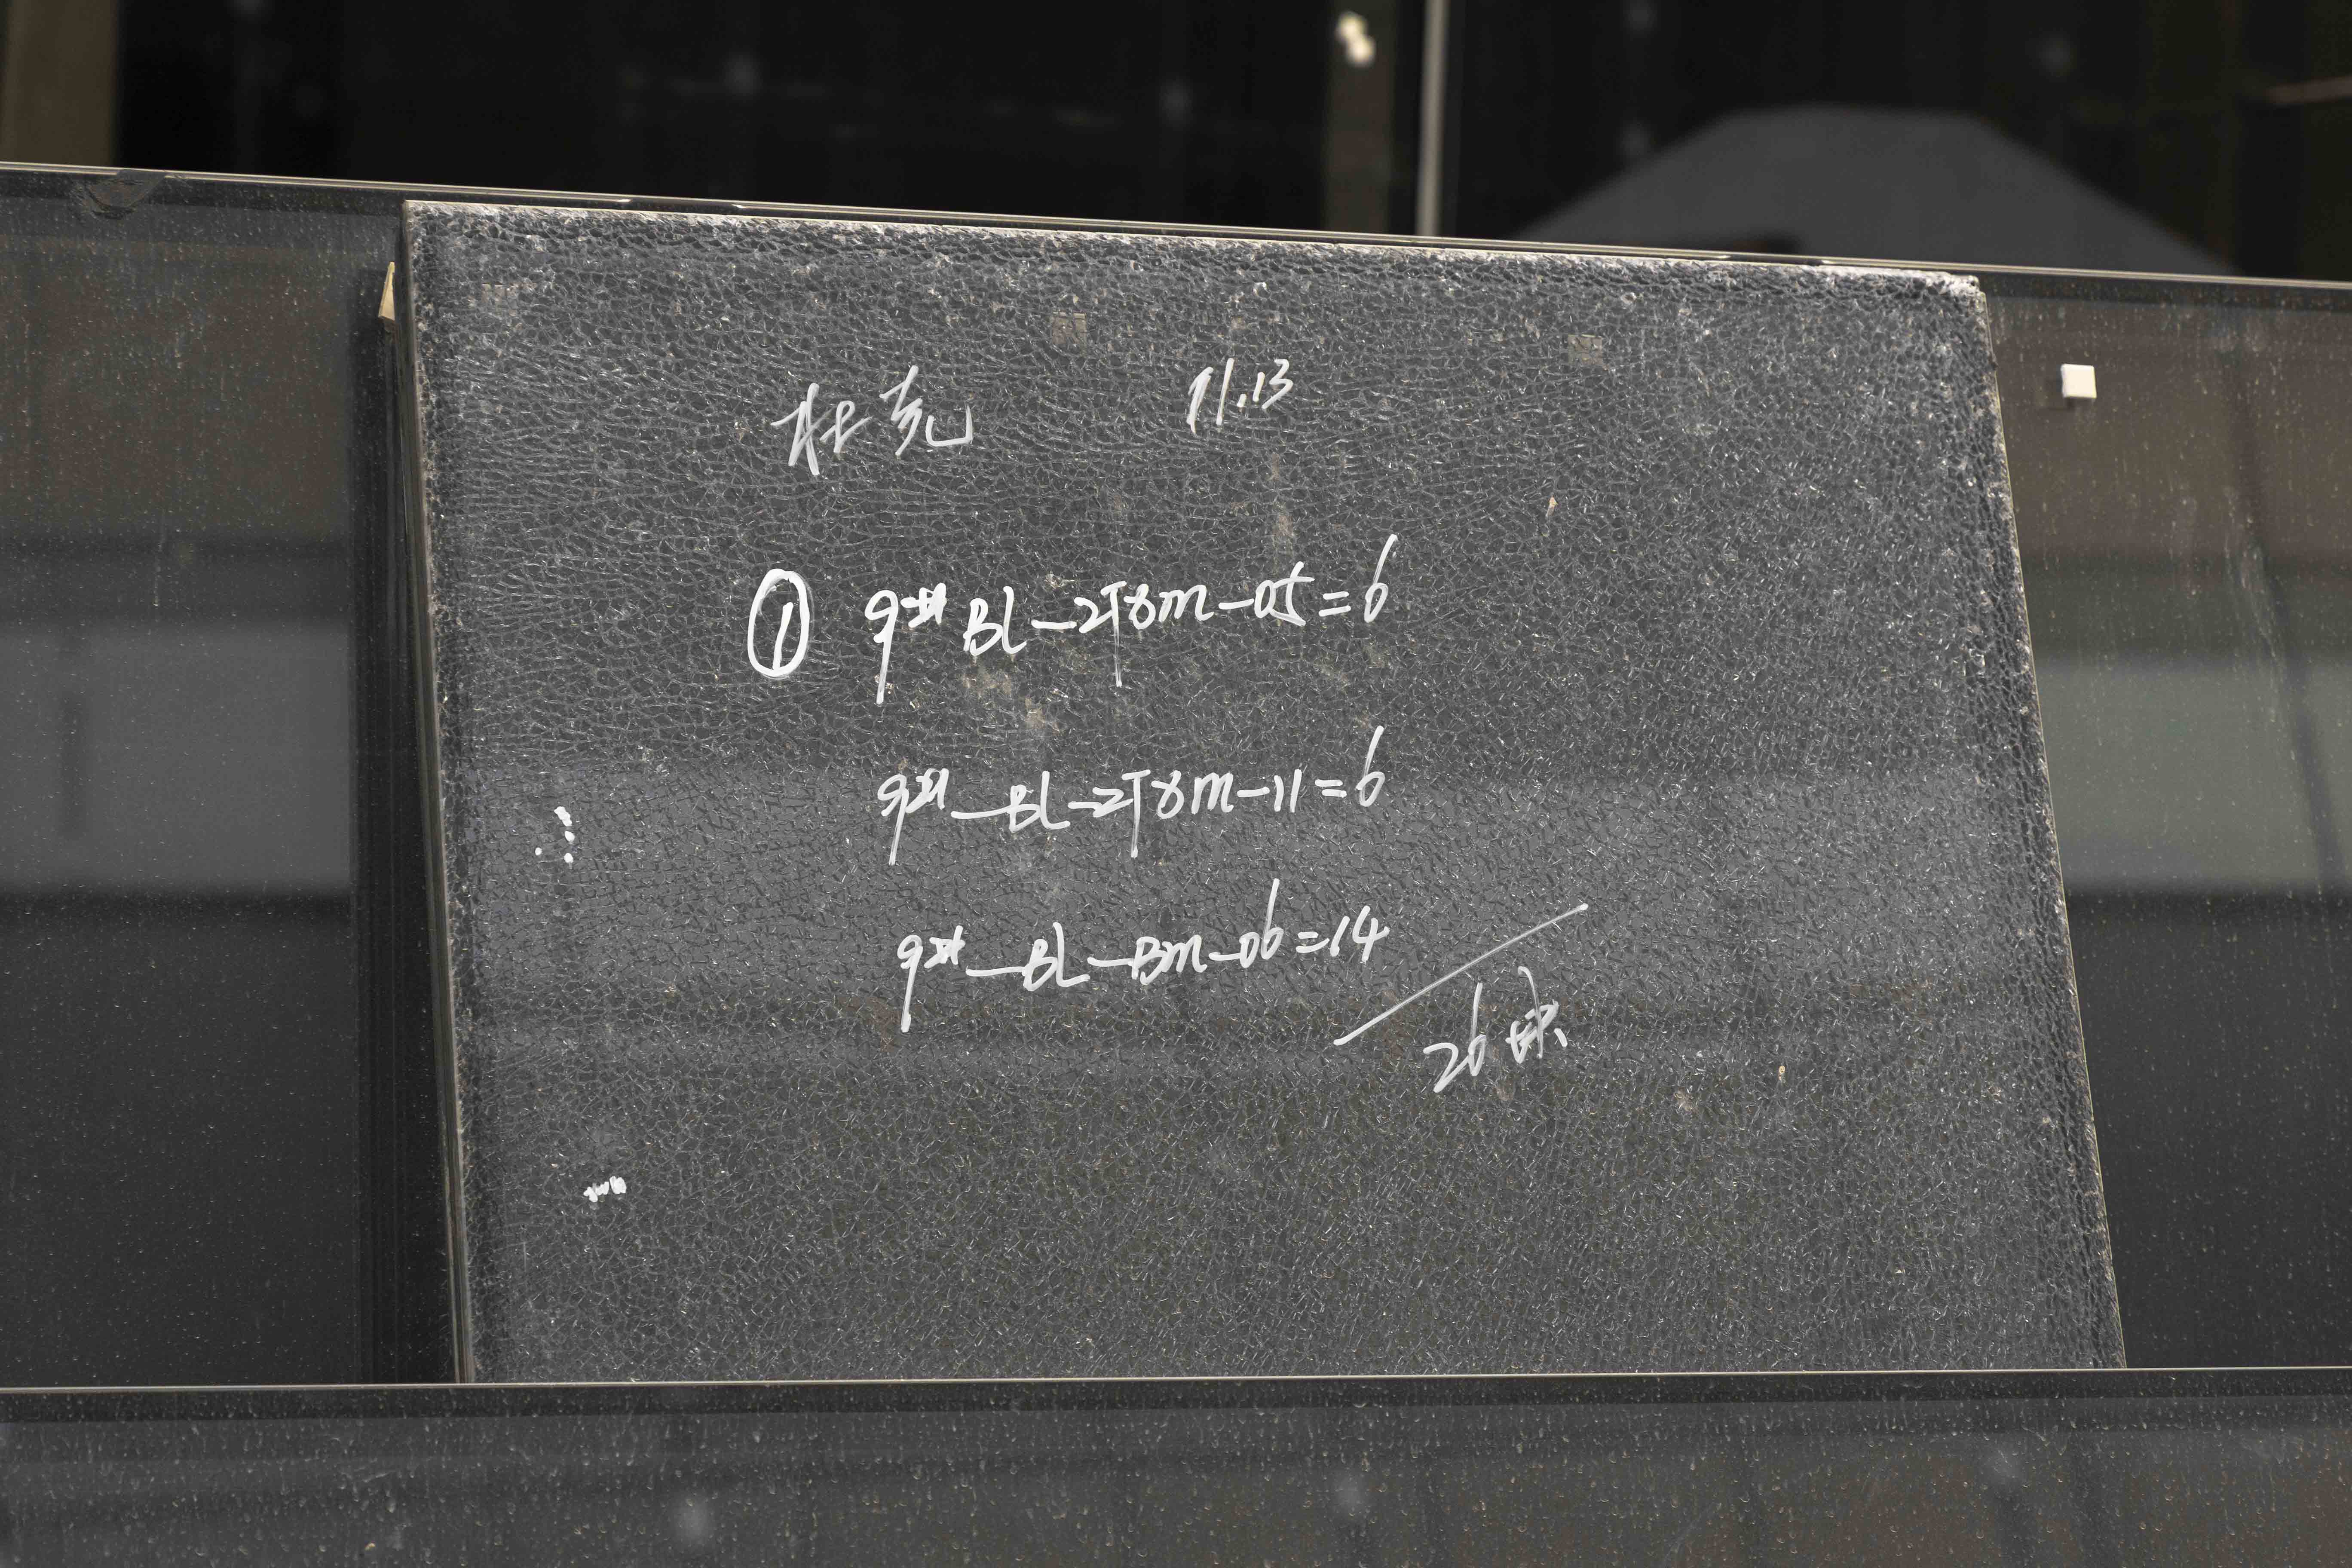 杜克 11.13
① 9# BL-2T8m-05=6
9# -BL-2T8m-11=6
9# -BL-Bm-06=14
26块